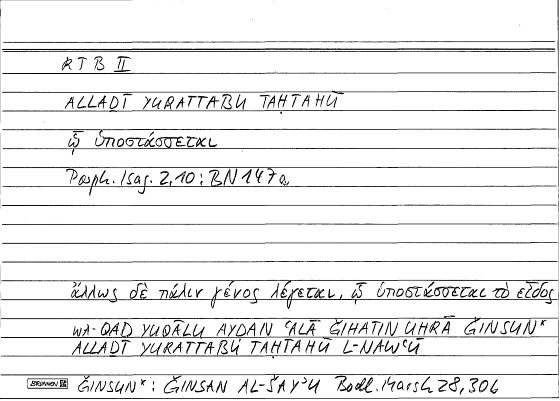 RTB II
ALLAḎĪ YURATTABU TAḤTAHŪ
ᾧ ὑποτάσσεται
Porph. Isag. 2,10; BN 147a
ἄλλως δὲ πάλιν γένος λέγεται, ᾧ ὑποτάσσεται τὸ εἶδος
WA-QAD YUQĀLU AYḌAN ʿALĀ ǦIHATIN UḪRĀ ǦINSUN*
ALLAḎĪ YURATTABU TAḤTAHŪ L-NAWʿU
BRUNNEN ǦINSUN*: ǦINSAN AL-ŠAYʾU Bodl. Marsh 28, 306